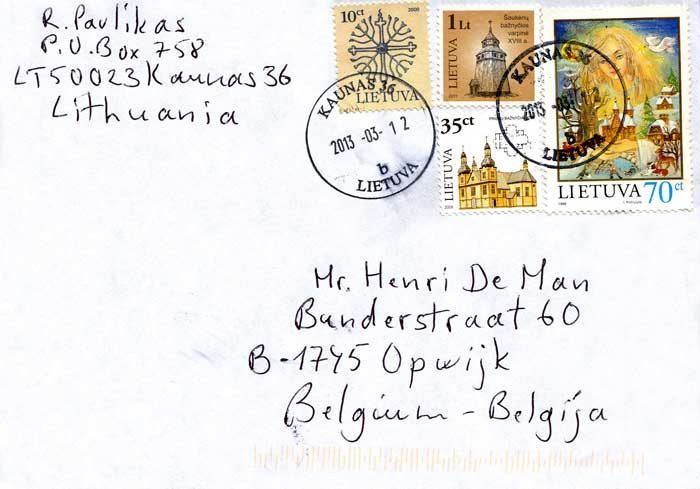 R. Pavlikas
P.O.Box 758
LT50023 Kaunas 36
Lithuania
10ct 2008
LIETUVA
1Lt
Šaukėnų
bažnyčios
varpinė
XVIII a.
LIETUVA
35ct
LIETUVA
2009
LIETUVA 70ct
1998
KAUNAS 36
2013 -03- 12
b
LIETUVA
KAUNAS 36
2013 -03-
b
LIETUVA
Mr. Henri De Man
Banderstraat 60
B-1745 Opwijk
Belgium - Belgija